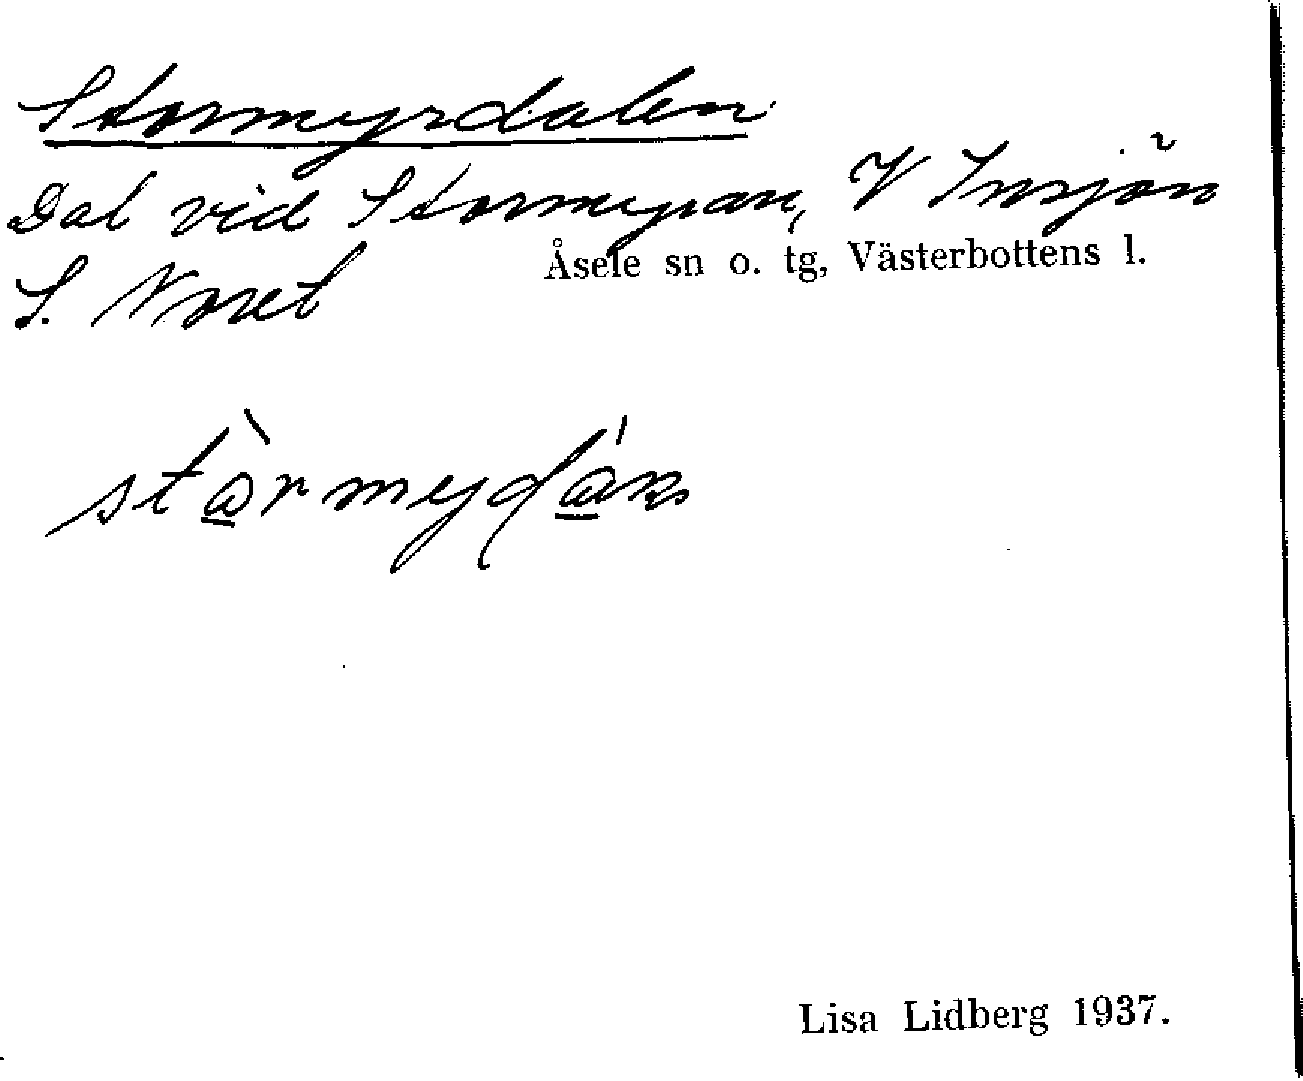 Stormyrdalen
Dal vid Stormyran, V Insjön
Åsele sn o. tg, Västerbottens l.
S. Noret
Lisa Lidberg 1937.